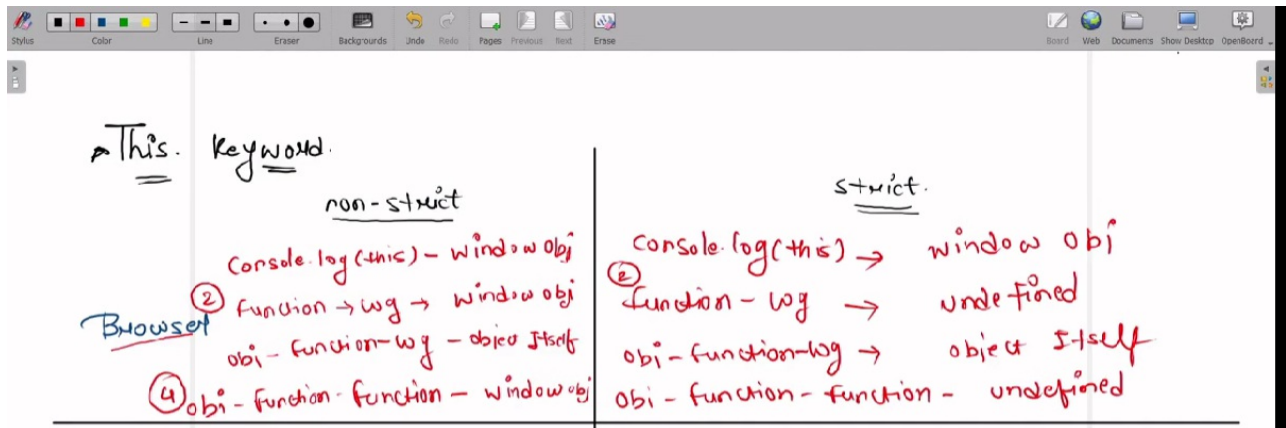 Stylus Color Line Eraser Backgrounds Undo Redo Pages Previous Next Erase Board Web Documents Show Desktop OpenBoard
This. Keyword.
non-strict
Console.log(this) - window obj
② function → log → window obj
Browser
obj - function - log - object Itself
④ obj - function - function - window obj
strict.
Console.log(this) → window obj
② function - log → undefined
obj - function - log → object Itself
obj - function - function - undefined